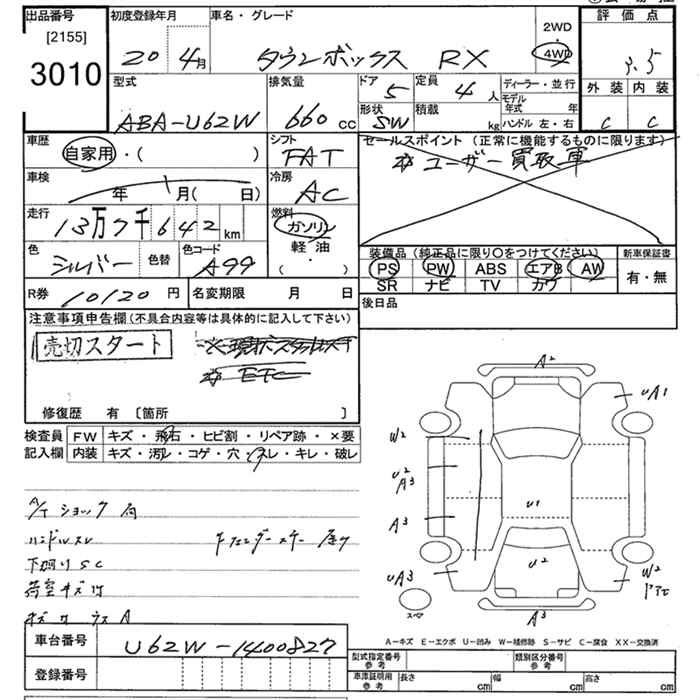 出品番号 初度登録年月 車名・グレード 2WD 評価点
[2155] 20 4月 タウンボックス RX 4WD 3.5
3010
型式 排気量 ドア 定員 ディーラー・並行 外装 内装
ABA-U62W 660cc 5 4人 モデル年式 年
形状 積載 ハンドル 左・右 C C
SW kg
車歴 シフト セールスポイント (正常に機能するものに限ります)
自家用・( ) FAT ユーザー買取車
車検 冷房
年 1月( 日) AC
走行 燃料
13万7千642km ガソリン
軽・油
・( )
色 色替 色コード 装備品 (純正品に限り○をつけてください) 新車保証書
シルバー A99 PS PW ABS エアB AW 有・無
SR ナビ TV カワ
R券 10120円 名変期限 月 日 後日品
注意事項申告欄(不具合内容等は具体的に記入して下さい)
売切スタート
ETC
修復歴 有 〔箇所 〕
検査員 FW キズ・飛石・ヒビ割・リペア跡・×要
記入欄 内装 キズ・汚レ・コゲ・穴・スレ・キレ・破レ
A2
UA1
W2
U2
A3
A3
U1
UA3
U2
W2
A3
スペア
A/T ショック 有
ハンドルスレ
下廻りSC
荷室キズ汚
A-キズ E-エクボ U-凹み W-補修跡 S-サビ C-腐食 XX-交換済
車台番号 U62W-1400827
登録番号
型式指定番号 参考 類別区分番号 参考
車庫証明用 参考 長さ cm 幅 cm 高さ cm